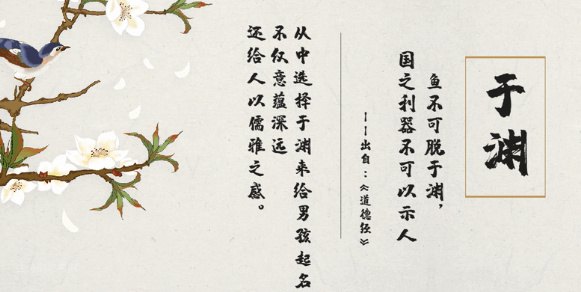 于渊
鱼不可脱于渊，
国之利器不可以示人
——出自：《道德经》
从中选择于渊来给男孩起名
不仅意蕴深远
还给人以儒雅之感。